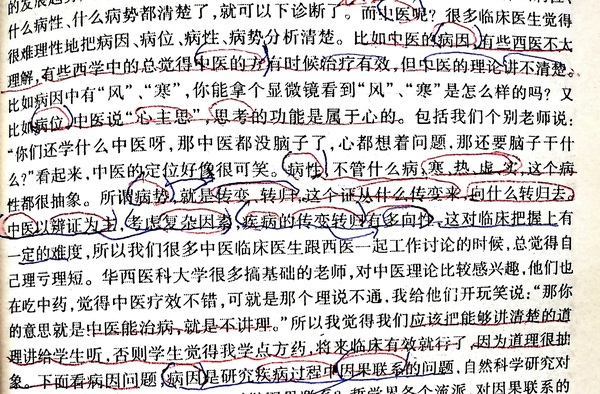 什么病性、什么病势都清楚了，就可以下诊断了。而中医呢？很多临床医生觉得
很难理性地把病因、病位、病性、病势分析清楚。比如中医的病因，有些西医不太
理解，有些西学中的总觉得中医的方有时候治疗有效，但中医的理论讲不清楚。
比如病因中有“风”、“寒”，你能拿个显微镜看到“风”、“寒”是怎么样的吗？又
比如病位，中医说“心主思”，思考的功能是属于心的。包括我们个别老师说：
“你们还学什么中医呀，那中医都没脑子了，心都想着问题，那还要脑子干什
么？”看起来，中医的定位好像很可笑。病性，不管什么病，寒、热、虚、实，这个病
性都很抽象。所谓病势，就是传变、转归，这个证从什么传变来，向什么转归去。
中医以辩证为主，考虑复杂因素，疾病的传变转归有多向性，这对临床把握上有
一定的难度，所以我们很多中医临床医生跟西医一起工作讨论的时候，总觉得自
己理亏理短。华西医科大学很多搞基础的老师，对中医理论比较感兴趣，他们也
在吃中药，觉得中医疗效不错，可就是那个理说不通，我给他们开玩笑说：“那你
的意思就是中医能治病，就是不讲理。”所以我觉得我们应该把能够讲清楚的道
理讲给学生听，否则学生觉得我学点方药，将来临床有效就行了，因为道理很抽
象。下面看病因问题，病因是研究疾病过程中因果联系的问题，自然科学研究对